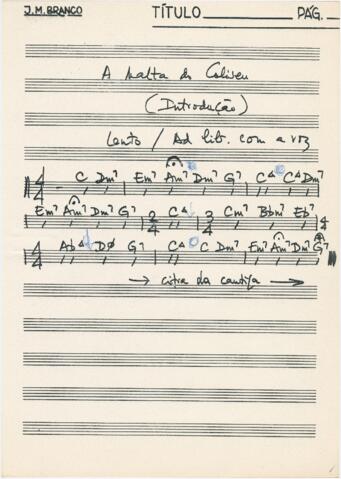 J.M. BRANCO TÍTULO PÁG.
A Malta do Coliseu
(Introdução)
Lento / Ad lib. com a voz
4/4 C Dm7 Em7 Am7 Dm7 G7 C△ C△ Dm7
Em7 Am7 Dm7 G7 2/4 C△ 3/4 Cm7 Bbm7 Eb7 4/4
4/4 Ab△ DØ G7 C△ C Dm7 Em7 Am7 Dm7 G7
→ da cantiga →